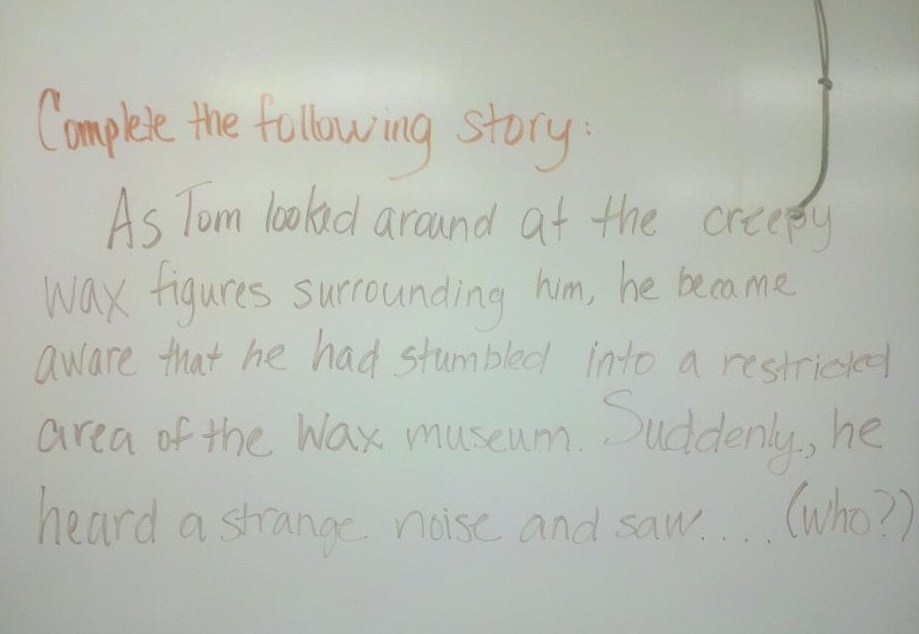 Complete the following story:
As Tom looked around at the creepy
wax figures surrounding him, he became
aware that he had stumbled into a restricted
area of the wax museum. Suddenly, he
heard a strange noise and saw.... (who?)